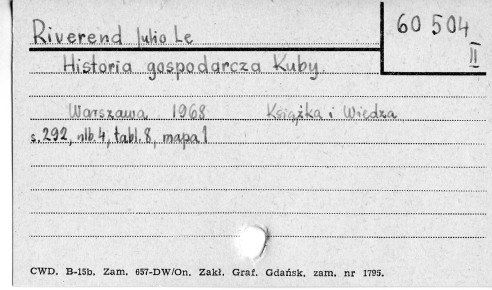 Riverend Julio Le
60 504
II
Historia gospodarcza Kuby.
Warszawa 1968 Książka i Wiedza
s. 292, nlb. 4, tabl. 8, mapa 1
CWD. B-15b. Zam. 657-DW/On. Zakł. Graf. Gdańsk. zam. nr 1795.